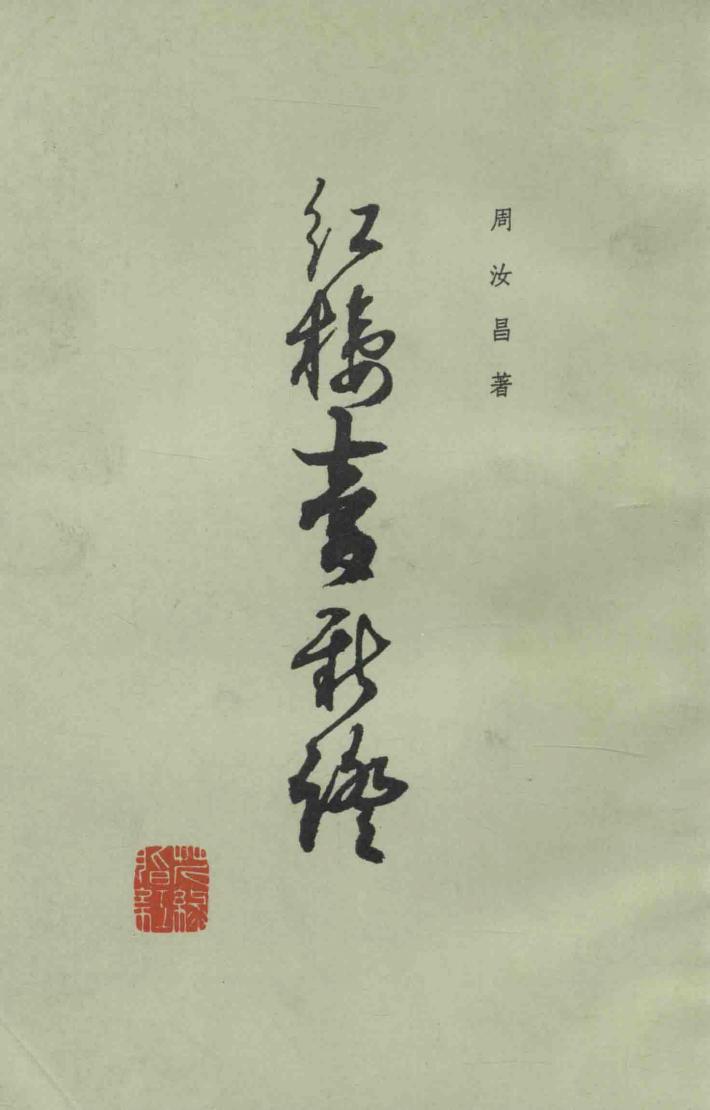 周汝昌著
红楼梦新證